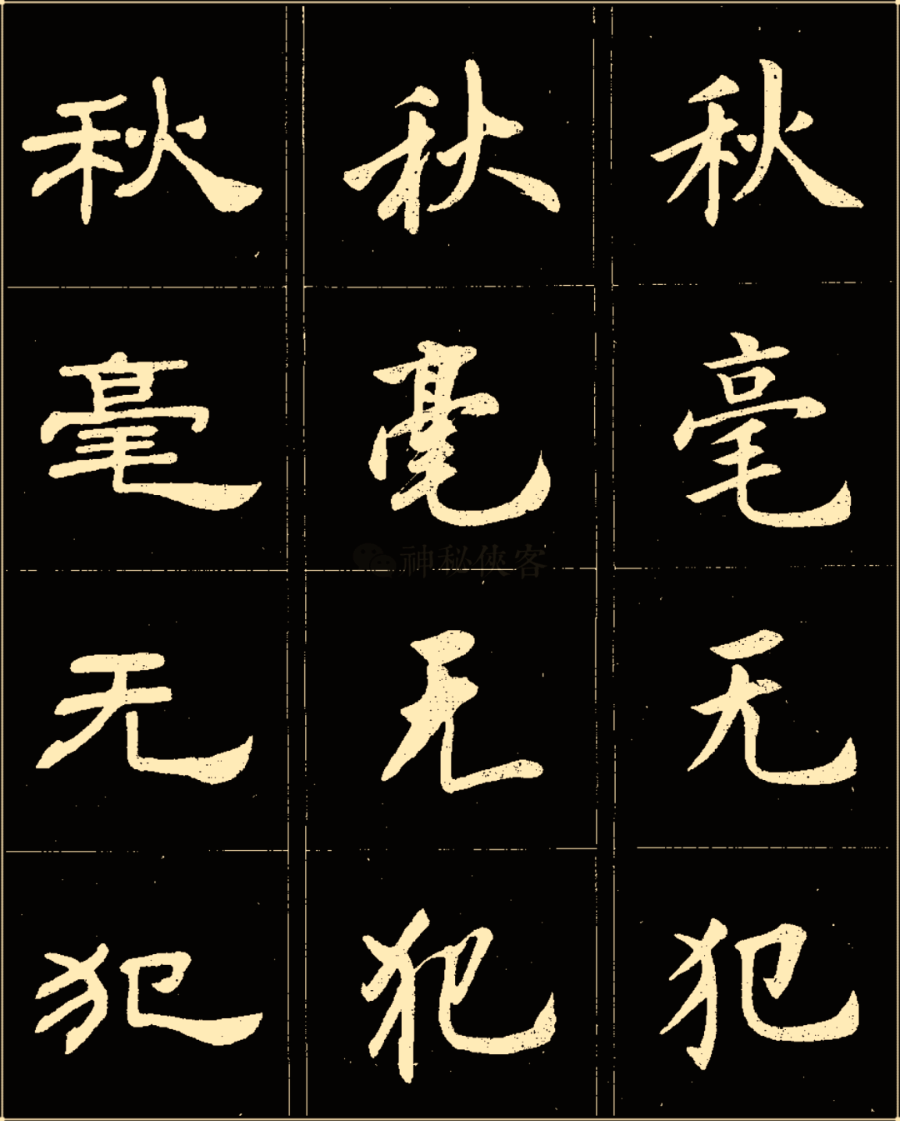 秋毫无犯
秋毫无犯
秋毫无犯
神秘俠客